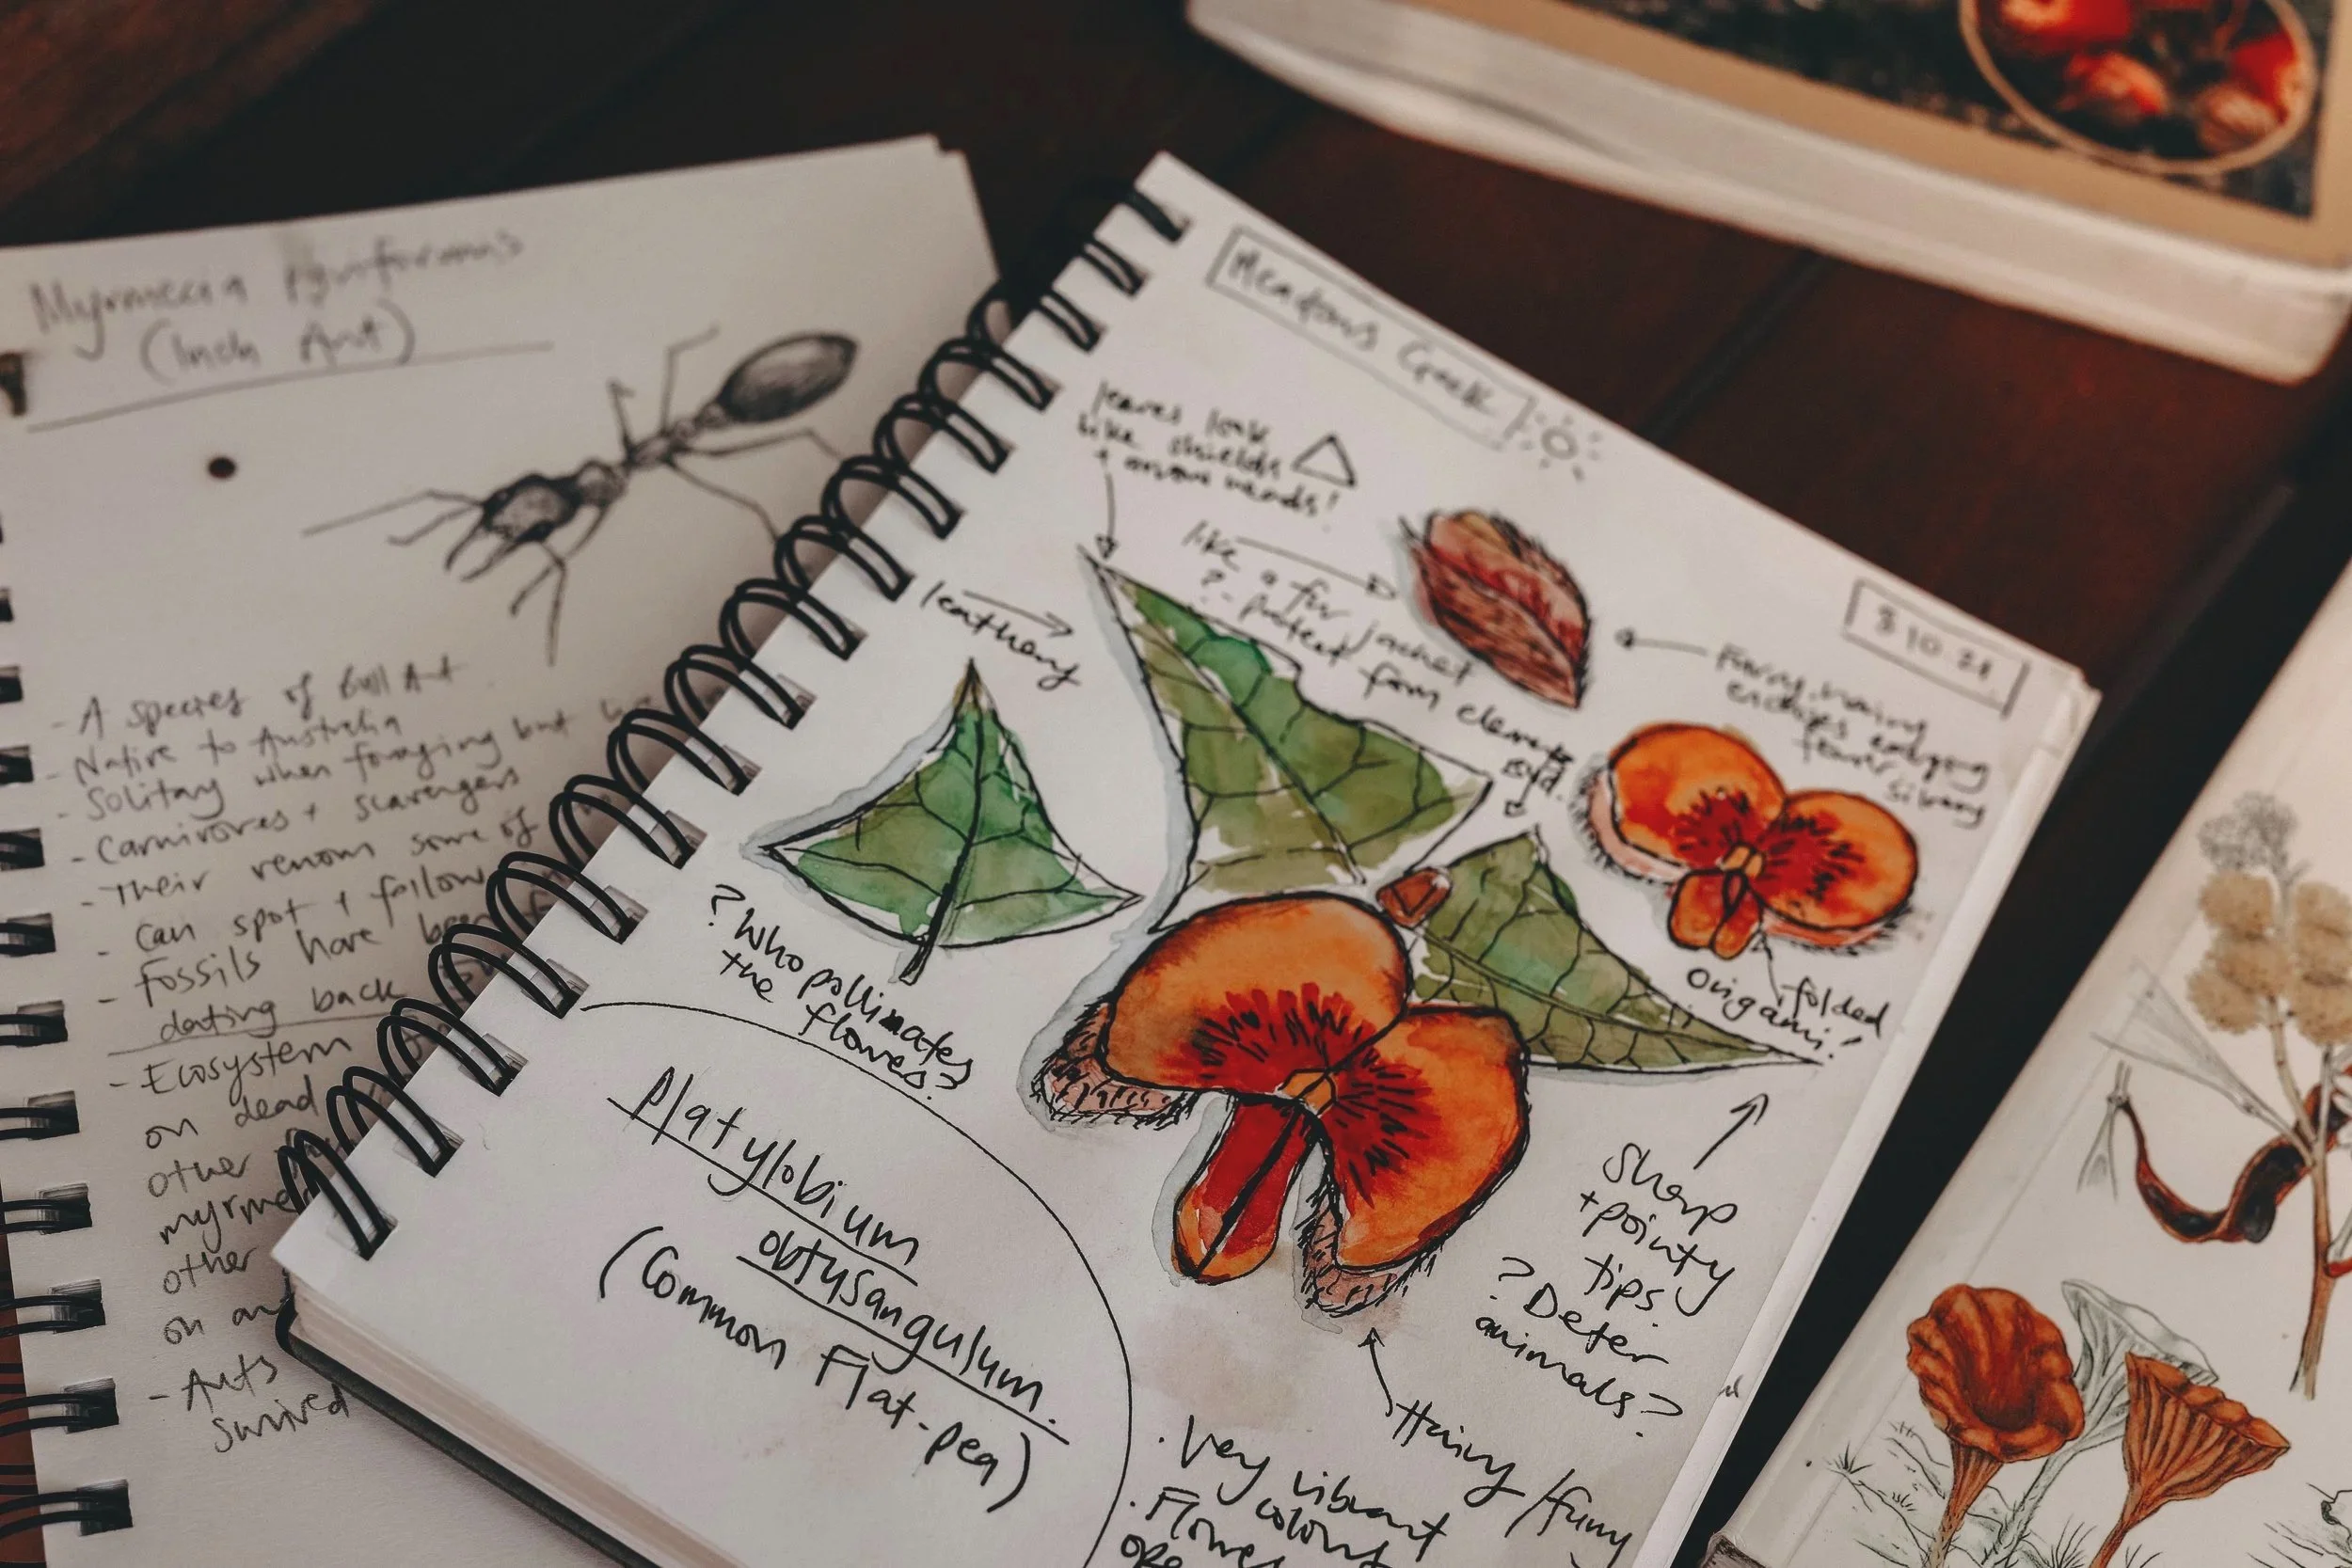 Myrmecia pyriformis
(Inch Ant)
- A species of Bull Ant
- Native to Australia
- Solitary when foraging but
- Carnivores + scavengers
- Their venom some of
- Can spot + follow
- Fossils have been
dating back
- Ecosystem
on dead
other
myrme
other
on an
- Ants
survived
Meadows Creek
3 10 21
leaves look
like shields
+ arrow heads!
like a fur jacket
? - protect from elements
leathery
Furry, hairy
folded
origami!
? Who pollinates
the flowers?
Platylobium
obtusangulum.
(Common Flat-pea)
Sharp
+ pointy
tips.
? Deter
animals?
Hairy/furry
. Very vibrant
colours
. Flowers
are